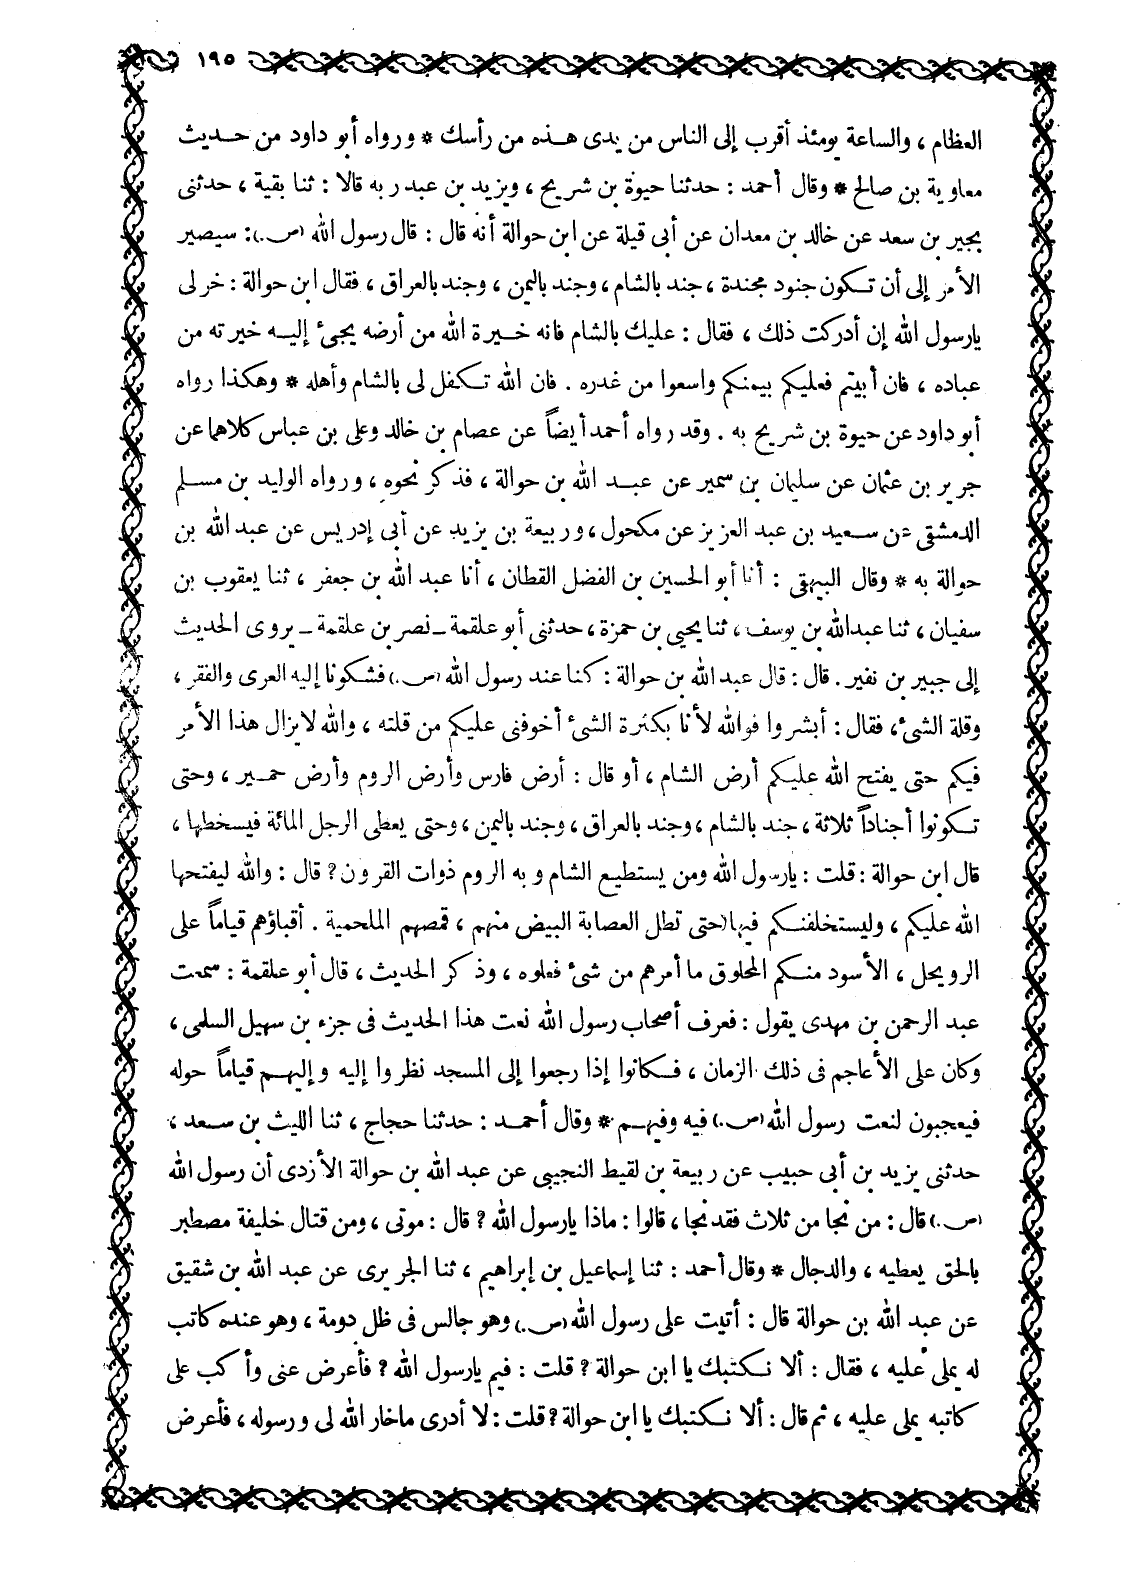 ١٩٥
العظام ، والساعة يومئذ أقرب إلى الناس من يدى هذه من رأسك * ورواه أبو داود من حديث
معاوية بن صالح * وقال أحمد : حدثنا حيوة بن شريح ، ويزيد بن عبد ربه قالا : ثنا بقية ، حدثنى
بجير بن سعد عن خالد بن معدان عن أبى قيلة عن ابن حوالة أنه قال : قال رسول الله (ص.): سيصير
الأمر إلى أن تكون جنود مجندة ، جند بالشام ، وجند باليمن ، وجند بالعراق ، فقال ابن حوالة : خر لى
يارسول الله إن أدركت ذلك ، فقال : عليك بالشام فانه خيرة الله من أرضه يجىء إليه خيرته من
عباده ، فان أبيتم فعليكم بيمنكم واسعوا من غدره . فان الله تكفل لى بالشام وأهله * وهكذا رواه
أبو داود عن حيوة بن شريح به . وقد رواه أحمد أيضاً عن عصام بن خالد وعلى بن عباس كلاهما عن
جرير بن عثمان عن سليمان بن سمير عن عبد الله بن حوالة ، فذكر نحوه ، ورواه الوليد بن مسلم
الدمشقى عن سعيد بن عبد العزيز عن مكحول ، وربيعة بن يزيد عن أبى إدريس عن عبد الله بن
حوالة به * وقال البيهقى : أنا أبو الحسين بن الفضل القطان ، أنا عبد الله بن جعفر ، ثنا يعقوب بن
سفيان ، ثنا عبدالله بن يوسف ، ثنا يحيى بن حمزة ، حدثنى أبو علقمة ـ نصر بن علقمة ـ يروى الحديث
إلى جبير بن نفير . قال : قال عبد الله بن حوالة : كنا عند رسول الله (ص.) فشكونا إليه العرى والفقر ،
وقلة الشىء ، فقال : أبشروا فوالله لأنا بكثرة الشىء أخوفنى عليكم من قلته ، والله لايزال هذا الأمر
فيكم حتى يفتح الله عليكم أرض الشام ، أو قال : أرض فارس وأرض الروم وأرض حمير ، وحتى
تكونوا أجناداً ثلاثة ، جند بالشام ، وجند بالعراق ، وجند باليمن ، وحتى يعطى الرجل المائة فيسخطها ،
قال ابن حوالة : قلت : يارسول الله ومن يستطيع الشام وبه الروم ذوات القرون ? قال : والله ليفتحها
الله عليكم ، وليستخلفنكم فيها (حتى تطل العصابة البيض منهم ، قمصهم الملحمية . أقباؤهم قياماً على
الرويحل ، الأسود منكم المحلوق ما أمرهم من شىء فعلوه ، وذكر الحديث ، قال أبو علقمة : سمعت
عبد الرحمن بن مهدى يقول : فعرف أصحاب رسول الله نعت هذا الحديث فى جزء بن سهيل السلمى ،
وكان على الأعاجم فى ذلك الزمان ، فكانوا إذا رجعوا إلى المسجد نظروا إليه وإليهم قياماً حوله
فيعجبون لنعت رسول الله (ص.) فيه وفيهم * وقال أحمد : حدثنا حجاج ، ثنا الليث بن سعد ،
حدثنى يزيد بن أبى حبيب عن ربيعة بن لقيط النجيبى عن عبد الله بن حوالة الأزدى أن رسول الله
(ص.) قال : من نجا من ثلاث فقد نجا ، قالوا : ماذا يارسول الله ? قال : موتى ، ومن قتال خليفة مصطبر
بالحق يعطيه ، والدجال * وقال أحمد : ثنا إسماعيل بن إبراهيم ، ثنا الجريرى عن عبد الله بن شقيق
عن عبد الله بن حوالة قال : أتيت على رسول الله (ص.) وهو جالس فى ظل دومة ، وهو عنده كاتب
له يملى عليه ، فقال : ألا نكتبك يا ابن حوالة ? قلت : فيم يارسول الله ? فأعرض عنى وأكب على
كاتبه يملى عليه ، ثم قال : ألا نكتبك يا ابن حوالة ? قلت : لا أدرى ماخار الله لى ورسوله ، فأعرض